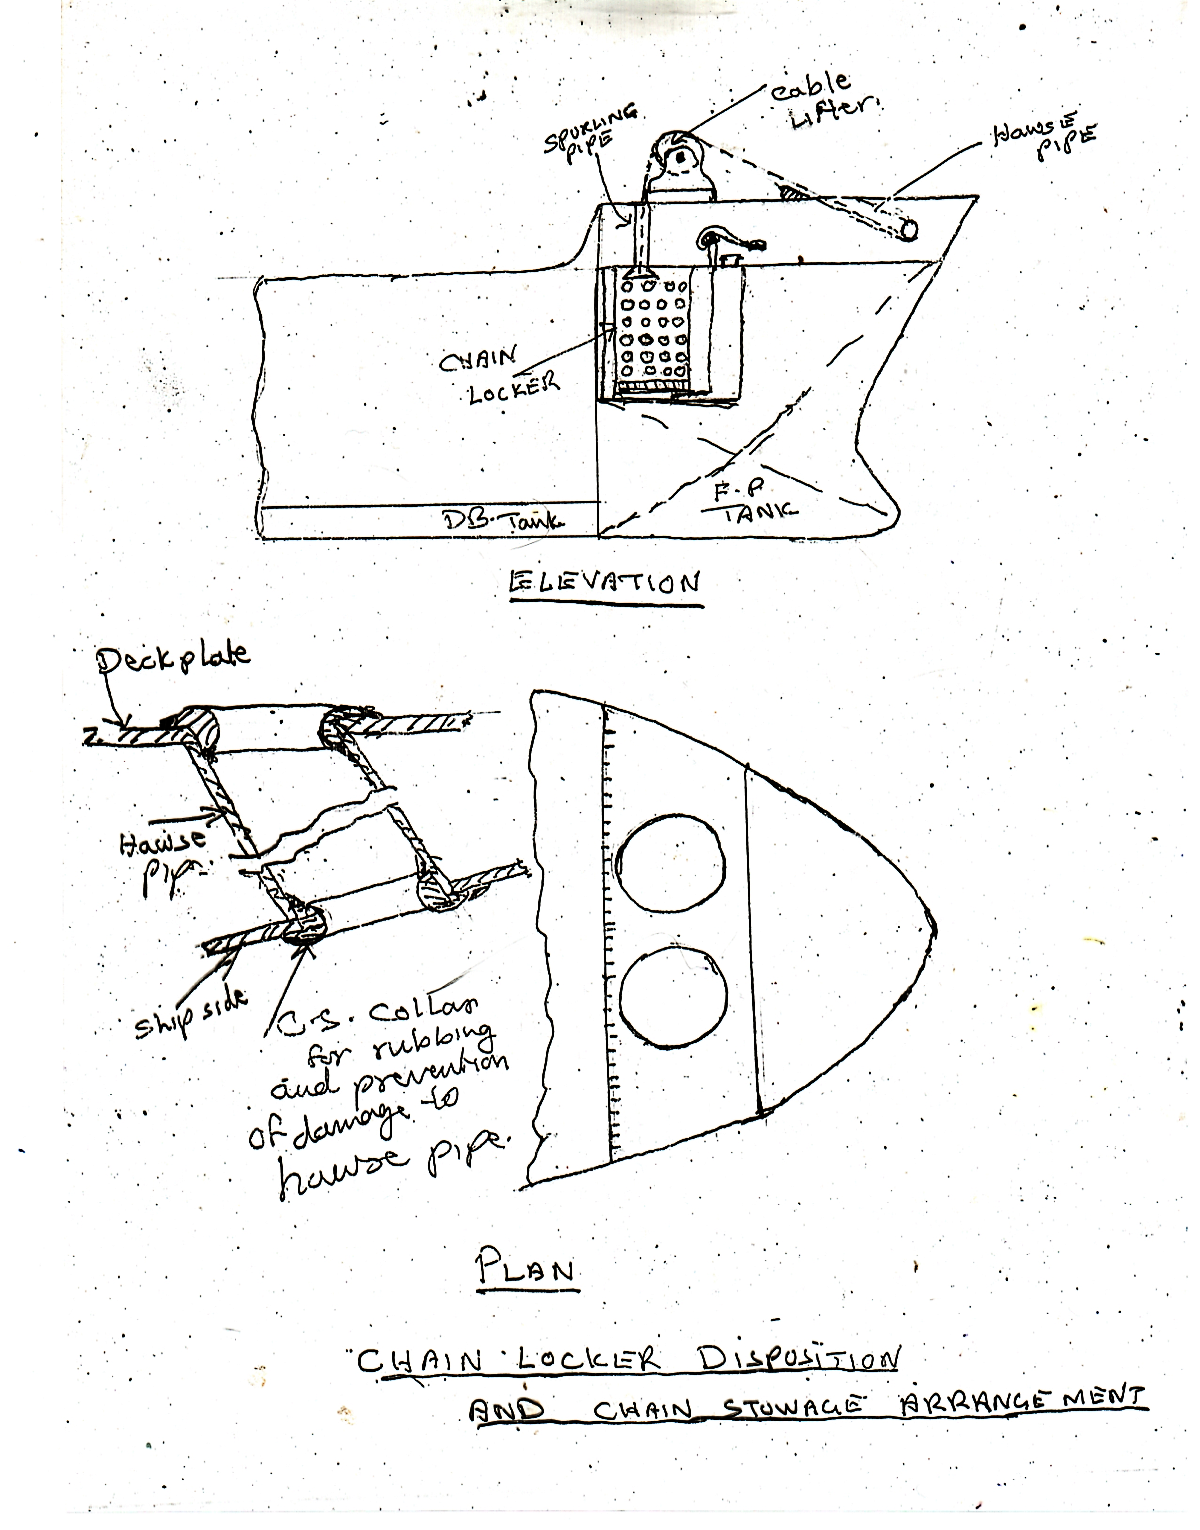 cable
Lifter.
SPURLING
PIPE
HAWSE
PIPE
CHAIN
LOCKER
F.P
TANK
DB. Tank
ELEVATION
Deck plate
Hawse
pipe
Ship side
C.S. Collar
for rubbing
and prevention
of damage to
hawse pipe.
PLAN
"CHAIN LOCKER DISPOSITION
AND CHAIN STOWAGE ARRANGEMENT